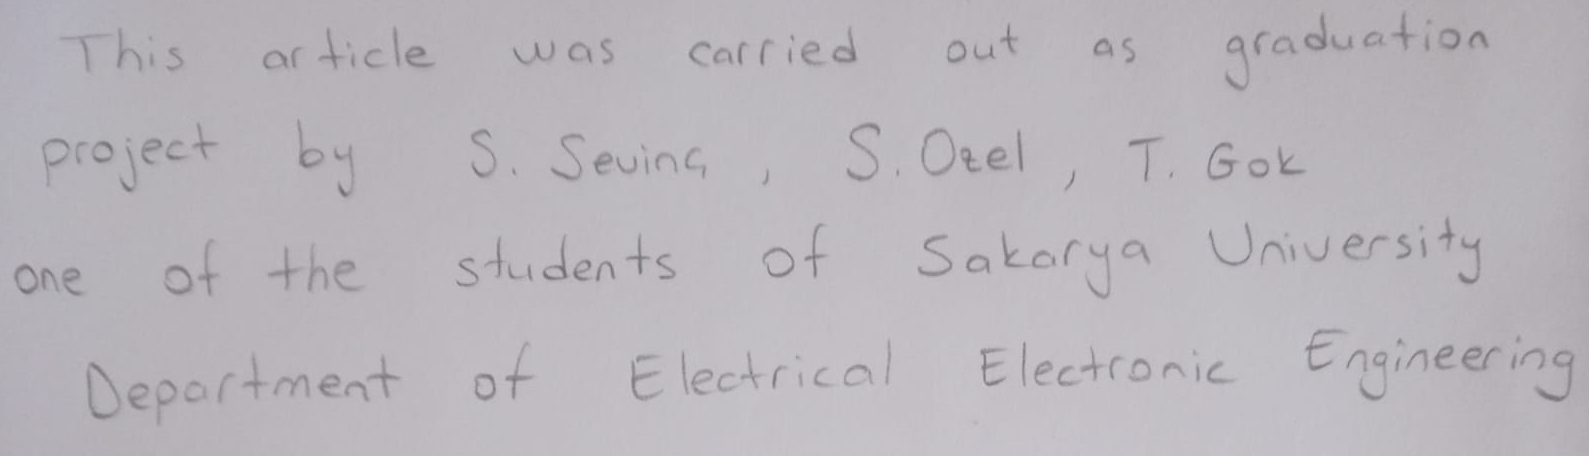 This article was carried out as graduation
project by S. Sevinç , S. Ozel , T. Gok
one of the students of Sakarya University
Department of Electrical Electronic Engineering